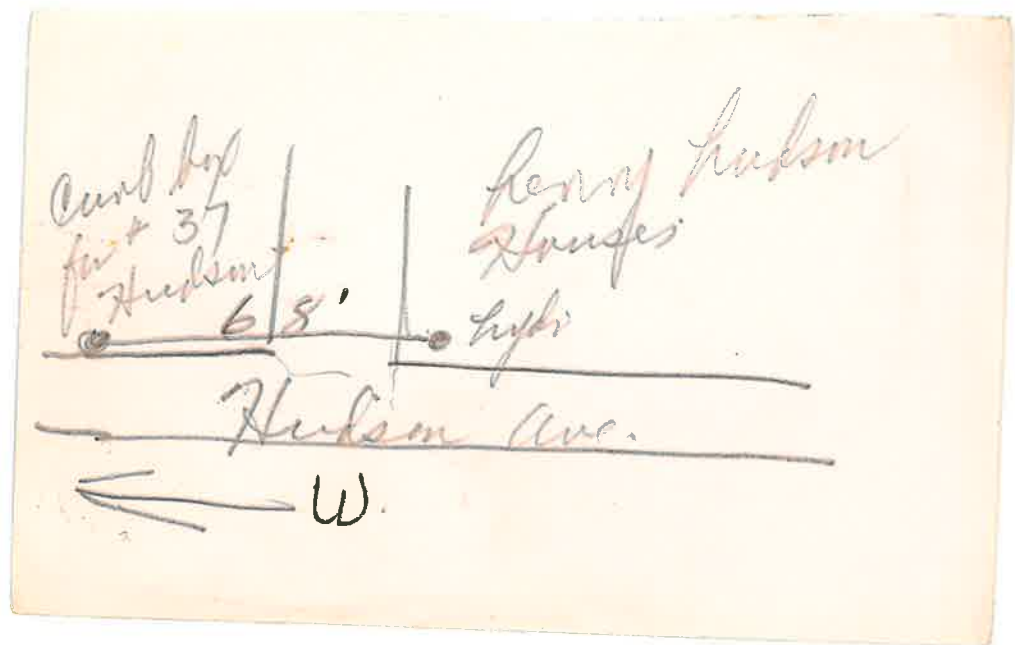 Curb box
for # 37
Hudson
Henry Hudson
Houses
68'
Hyd.
Hudson Ave.
W.